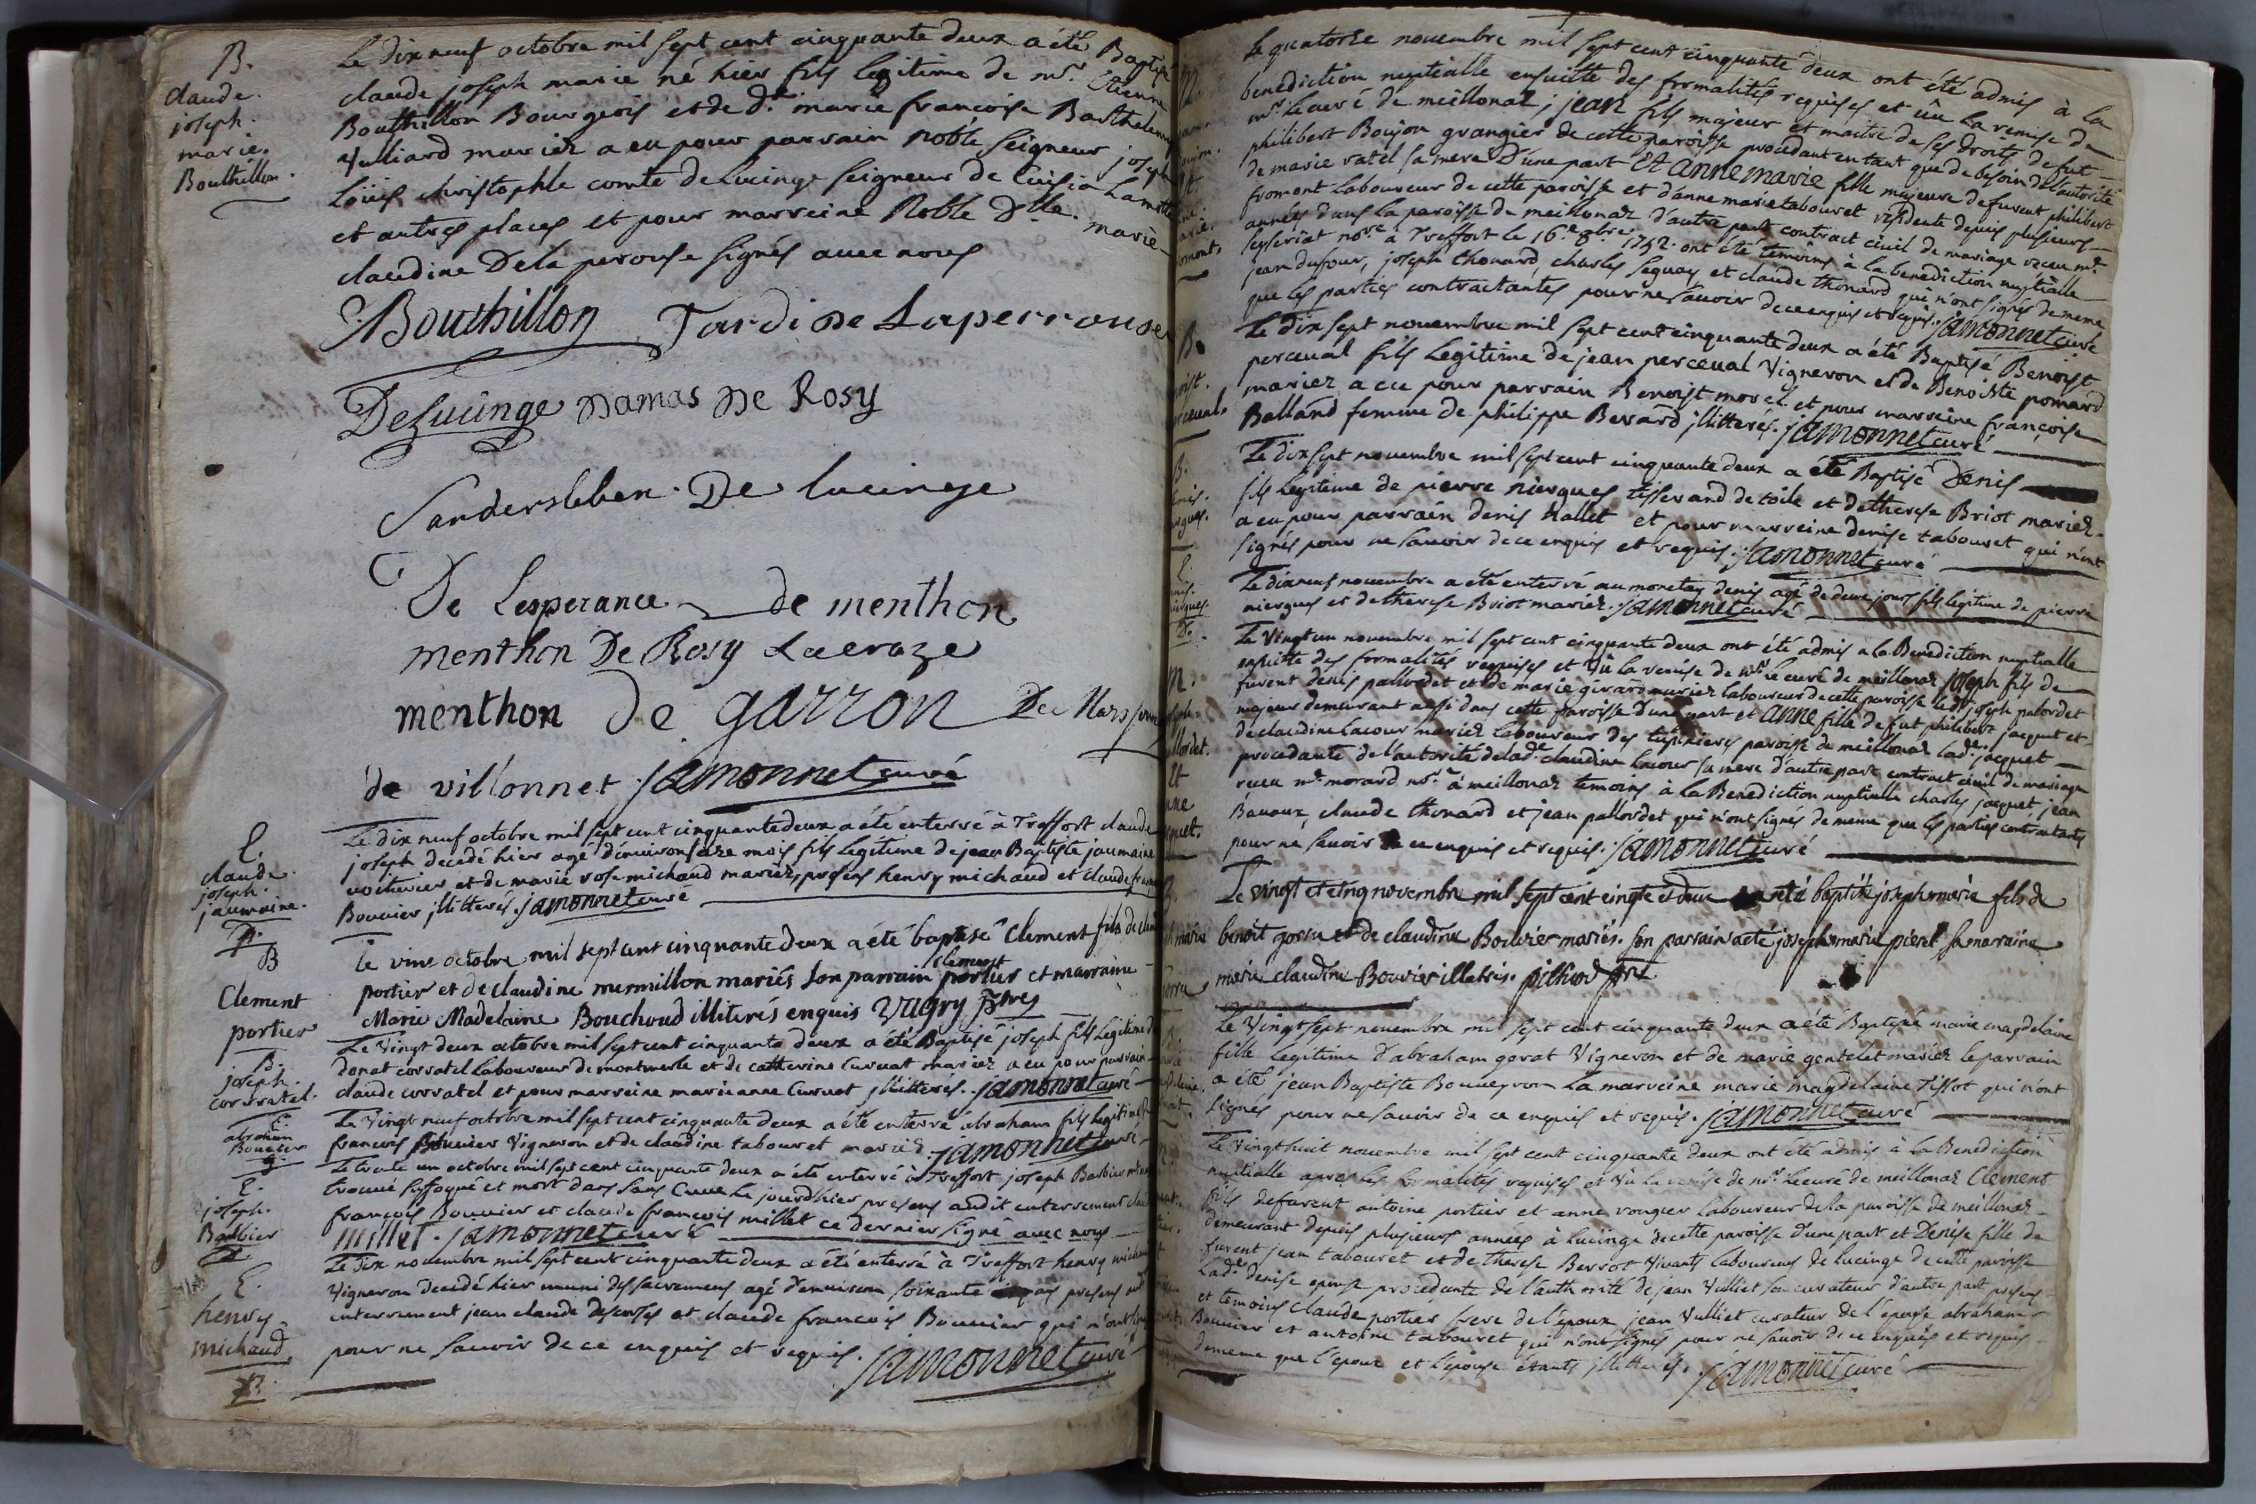 B.
claude.
joseph.
marie.
Bouthillon.
Le dix neuf octobre mil sept cent cinquante deux a été Baptisé
claude joseph marie né hier fils legitime de mr. Etienne
Bouthillon Bourgeois et de de. marie francoise Barthelemy
Vulliard mariez a eu pour parrain noble seigneur joseph
Loüis christophle comte de Lucinge seigneur de Cuisia Lamotte
et autres places et pour marreine Noble Dlle. marie
claudine Dela perouse signés avec nous
Bouthillon Tardi De Laperrouse
DeLucinge Damas De Rosy
Sandersleben. De lucinge
De Lesperance de menthon
menthon De Rosy Lacraze
menthon de garron De
de villonnet. jamonnet curé
E.
claude.
joseph.
jaumaine.
Le dix neuf octobre mil sept cent cinquante deux a été enterré à Treffort claude
joseph decedé hier agé d'environ seze mois fils legitime de jean Baptiste jaumaine
voiturier et de marie rose michaud mariez, presens henry michaud et claude
Bouvier jllitterés. jamonnet curé
B
Clement
portier
le vint octobre mil sept cent cinquante deux a été baptisé Clement fils de
portier et de claudine mermillon mariés son parrain clement portier et marraine
Marie Madelaine Bouchoud illiterés enquis Vugry ptre
B.
joseph.
corratel.
Le Vingt deux octobre mil sept cent cinquante deux a été Baptisé joseph fils legitime de
donat corratel laboureur de montmerle et de catherine Curvat mariez a eu pour parrain
claude corratel et pour marreine marianne Curvat jllitterés. jamonnet curé
E.
abraham
Bouvier
Le Vingt neuf octobre mil sept cent cinquante deux a été enterré abraham fils legitime de
francois Bouvier Vigneron et de claudine tabouret mariez. jamonnet curé
E.
joseph.
Barbier
Le trente un octobre mil sept cent cinquante deux a été enterré à Treffort joseph Barbier
trouvé suffoqué et mort dans sans Cuve le jourdhier presens audit enterrement
francois Bouvier et claude francois millet ce dernier signé avec nous
millet. jamonnet curé
E.
henry
michaud
Le dix novembre mil sept cent cinquante deux a été enterré à Treffort henry michaud
Vigneron decedé hier muni des sacremens agé d'environ soixante ans presens audit
enterrement jean claude et claude francois Bouvier qui n'ont signé
pour ne savoir de ce enquis et requis. jamonnet curé
Le quatorse novembre mil sept cent cinquante deux ont été admis à la
benediction nuptialle ensuitte des formalités requises et vû la remise de
mr. le curé de meillonaz; jean fils majeur et maitre de ses droits de fut
philibert Boujon grangier de cette paroisse procedant entant que de besoin de l'autorité
de marie ratel sa mere d'une part Et Anne marie fille majeure de furent philibert
fromont Laboureur de cette paroisse et d'anne marie tabouret residente depuis plusieurs
années dans la paroisse de meillonaz d'autre part contract civil de mariage receu mr.
seyseriat nore. à Treffort le 16e. 8bre. 1752. ont été temoins à la benediction nuptialle
jean dufour, joseph thonard, charles seguay et claude thonard qui n'ont signés de meme
que les parties contractantes pour ne savoir de ce enquis et requis. jamonnet curé
Le dix sept novembre mil sept cent cinquante deux a été Baptisé Benoist
perceval fils Legitime de jean perceval Vigneron et de Benoiste pomard
mariez a eu pour parrain Benoist morel et pour marreine françoise
Balland femme de philippe Bevard jllitterés. jamonnet curé
Le dix sept novembre mil sept cent cinquante deux a été Baptisé Denis
fils legitime de pierre niergues tisserand de toile et de therese Briot mariez.
a eu pour parrain denis hallet et pour marreine denise tabouret qui n'ont
signés pour ne savoir de ce enquis et requis. jamonnet curé
Le dix neuf novembre a été enterré au monetay denis agé de deux jours fils legitime de pierre
niergues et de therese Briot mariez. jamonnet curé
Le Vingt un novembre mil sept cent cinquante deux ont été admis a la Benediction nuptialle
ensuitte des formalités requises et vû la remise de mr. le curé de meillonaz joseph fils de
furent denis pallordet et de marie girard mariez laboureur de cette paroisse ledt. joseph palordet
majeur demeurant aussi dans cette paroisse d'une part et Anne fille de fut philibert jacquet et
de claudine Lacour mariez laboureur des tupiniers paroisse de meillonaz lade. jacquet
procedante de l'autorité de lade. claudine Lacour sa mere d'autre part contract civil de mariage
receu mr. morard nore. à meillonaz temoins à la Benediction nuptialle charles jacquet, jean
Bavoux, claude thonard et jean pallordet qui n'ont signés de meme que les parties contractantes
pour ne savoir de ce enquis et requis. jamonnet curé
Le vingt et cinq novembre mil sept cent cinqte et deux a eté baptisé joseph marie fils de
benoit gorru et de claudine Bouvier mariés. son parrain a eté joseph marie pieret sa marraine
marie claudine Bouvier illetrés. pilliard ptre
Le Vingt sept novembre mil sept cent cinquante deux a été Baptisée marie magdelaine
fille legitime d'abraham gorat Vigneron et de marie gentelet mariez le parrain
a été jean Baptiste Bouveyron la marreine marie magdelaine Tissot qui n'ont
signés pour ne savoir de ce enquis et requis. jamonnet curé
Le Vingt huit novembre mil sept cent cinquante deux ont été admis à la Benediction
nuptialle apres les formalités requises et vû la remise de mr. le curé de meillonaz Clement
fils de furent antoine portier et anne vongier laboureur de la paroisse de meillonaz
demeurant depuis plusieurs années à lucinge de cette paroisse d'une part et Denise fille de
furent jean tabouret et de therese Berrot Vivants laboureurs de lucinge de cette paroisse
Lade. denise epouse procedante de l'authorité de jean Vulliet son curateur d'autre part presens
et temoins claude portier frere de l'epoux, jean Vulliet curateur de l'epouse abraham
Bouvier et antoine tabouret qui n'ont signés pour ne savoir de ce enquis et requis
de meme que l'epoux et l'epouse étants jllitterés. jamonnet curé